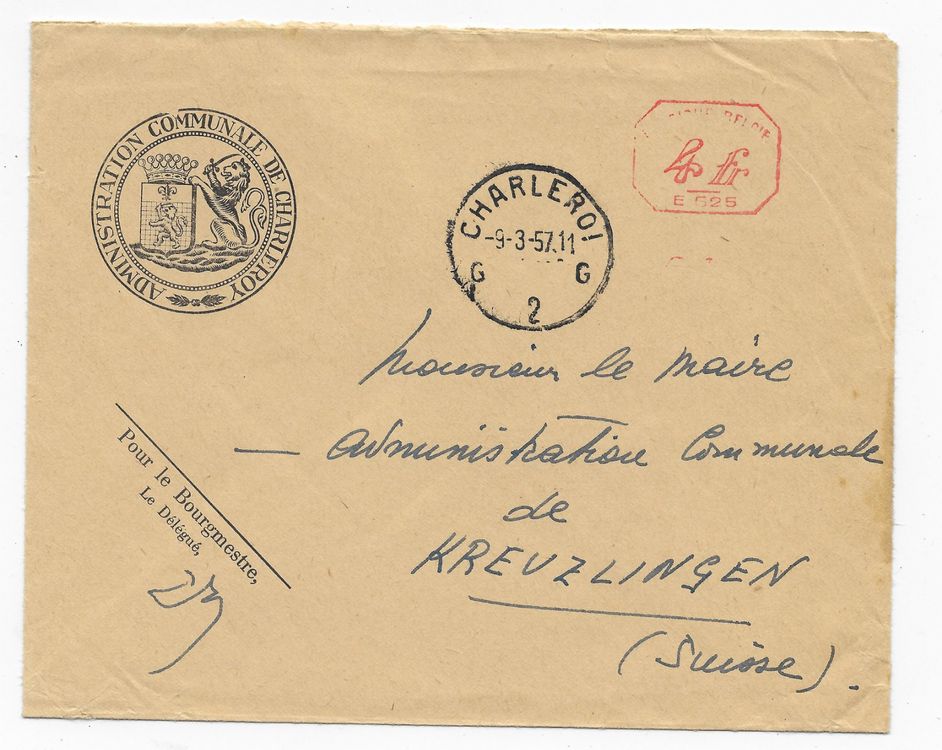 ADMINISTRATION COMMUNALE DE CHARLEROY
BELGIE
4 Fr
E 525
CHARLEROI
-9-3-57.11
G G
2
Monsieur le Maire
— Administration Communale
de
KREUZLINGEN
(Suisse).
Pour le Bourgmestre,
Le Délégué,